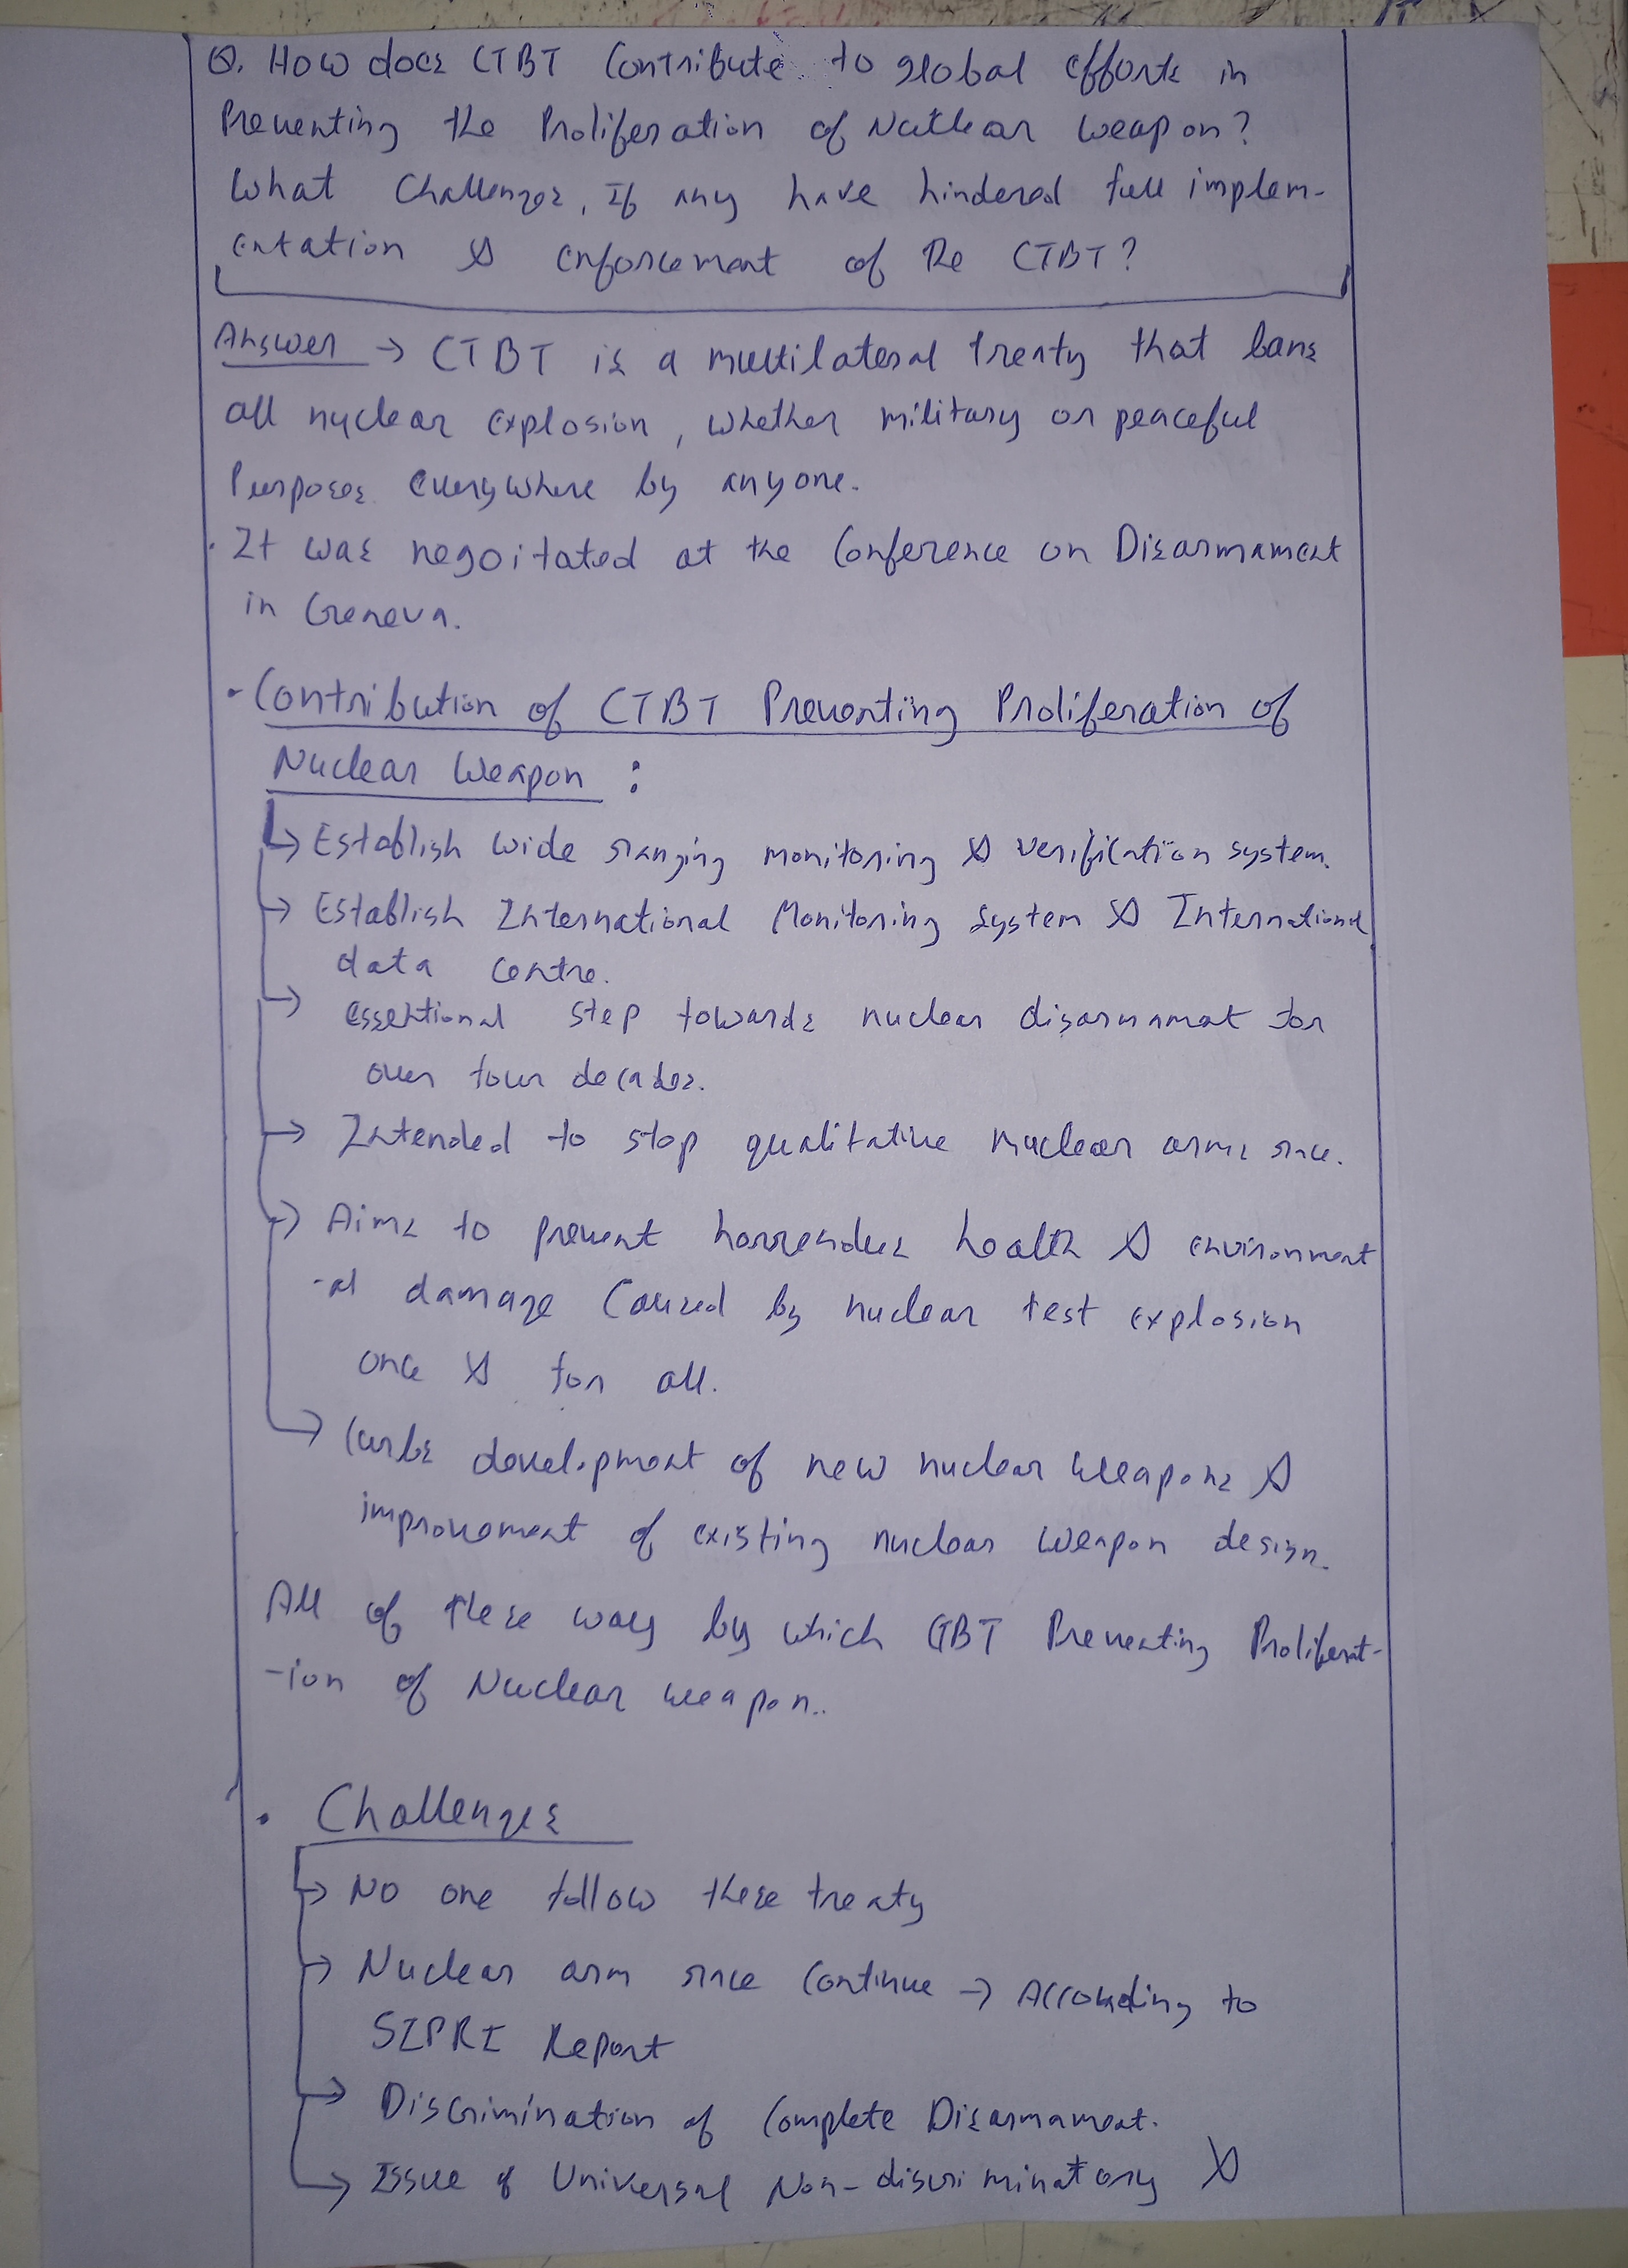 Q. How does CTBT Contribute to global efforts in
Preventing the Proliferation of Nuclear weapon?
What Challenges, If any have hindered full implem-
entation & enforcement of the CTBT?
Answer → CTBT is a multilateral treaty that bans
all nuclear explosion, whether military or peaceful
Purposes everywhere by anyone.
· It was negoitated at the Conference on Disarmament
in Geneva.
· Contribution of CTBT Preventing Proliferation of
Nuclear Weapon :
→ Establish wide ranging monitoring & verification system.
→ Establish International Monitoring System & International
data centre.
→ essentional step towards nuclear disarmament for
over four decades.
→ Intended to stop qualitative nuclear arms race.
→ Aims to prevent horrendous health & environment
-al damage caused by nuclear test explosion
once & for all.
→ Curbs development of new nuclear weapons &
improvement of existing nuclear weapon design.
All of these ways by which CTBT Preventing Proliferat-
-ion of Nuclear weapon..
· Challenges
→ No one follow these treaty
→ Nuclear arm race continue → According to
SIPRI Report
→ Discrimination of Complete Disarmament.
→ Issue of Universal Non-discriminatory &